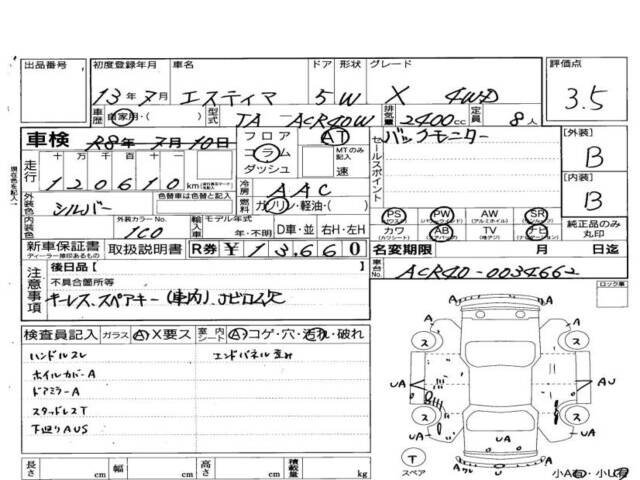 出品番号 初度登録年月 車名 ドア 形状 グレード 評価点
13年7月 エスティマ 5 W X 4WD 3.5
車歴 自家用・( ) 型式 TA-ACR40W 排気量 2400cc 定員 8人
車検 R8年7月10日 フロア AT セールスポイント バックモニター [外装]
走行 十 万 千 百 十 一 コラム MTのみ記入 B
120610 km ダッシュ 速 [内装]
外装色 シルバー 色替車は色替と記入 冷房 AAC B
燃料 ガソリン・軽油・( ) PS PW AW SR 純正品のみ丸印
内装色 外装カラーNo. 1C0 輸入車 モデル年式 年・不明 D車・並 右H・左H カワ AB TV ナビ
新車保証書 取扱説明書 R券 ¥13,660 名変期限 月 日迄
ディーラー捺印あるもの
車台No. ACR40-0034662
注意事項 後日品[ ]
不具合箇所等
キーレス、スペアキー(車内)、Jピロ欠
ロック車
検査員記入 ガラス A X要ス 室内シート A コゲ・穴・汚れ・破れ
ハンドルスレ エンドパネル歪み
ホイルカバーA
ドアミラーA
スタッドレスT
下廻りAUS
A A
ス ス
A A
UA AU
ス ス
UA U UA
T スペア
U
A A
長さ cm 幅 cm 高さ cm 積載量 kg 小A有・小U有